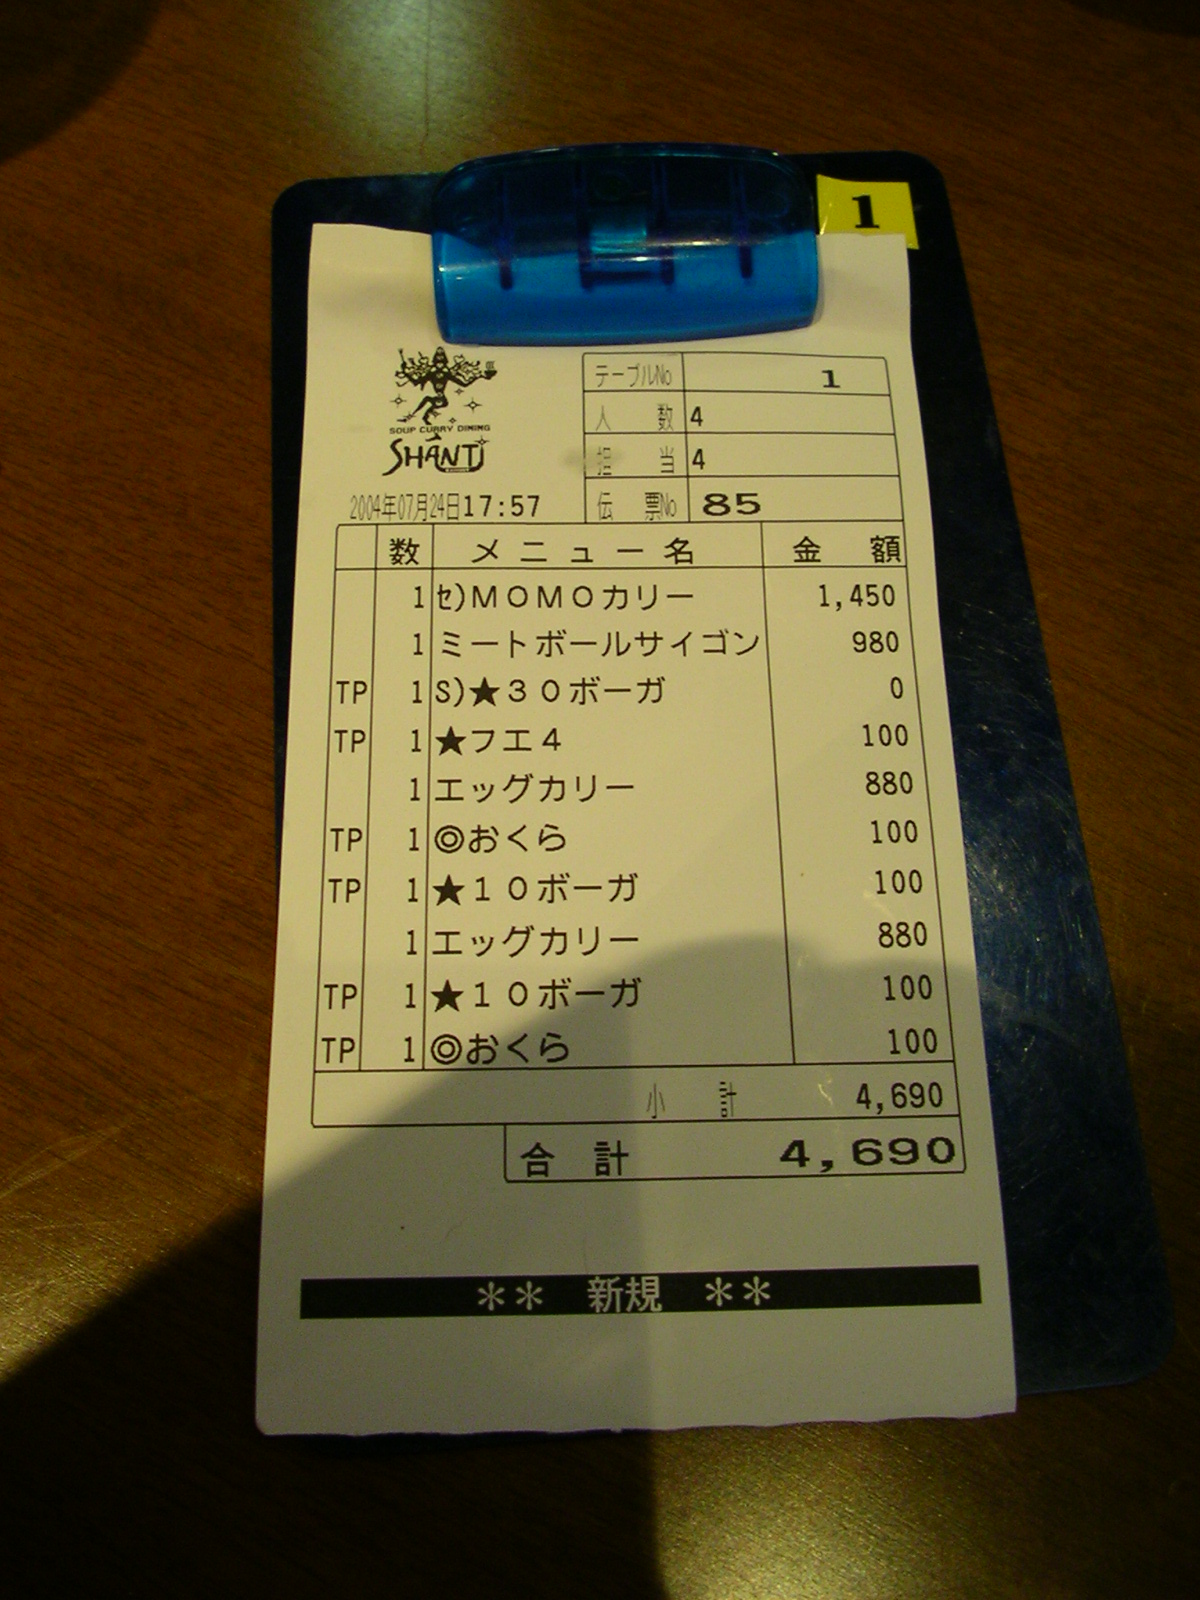 1
SOUP CURRY DINING
SHANTi
テーブルNo 1
人数 4
担当 4
伝票No 85
2004年07月24日17:57
数 メニュー名 金額
1 セ)MOMOカリー 1,450
1 ミートボールサイゴン 980
TP 1 S)★30ボーガ 0
TP 1 ★フエ4 100
1 エッグカリー 880
TP 1 ◎おくら 100
TP 1 ★10ボーガ 100
1 エッグカリー 880
TP 1 ★10ボーガ 100
TP 1 ◎おくら 100
小計 4,690
合計 4,690
** 新規 **